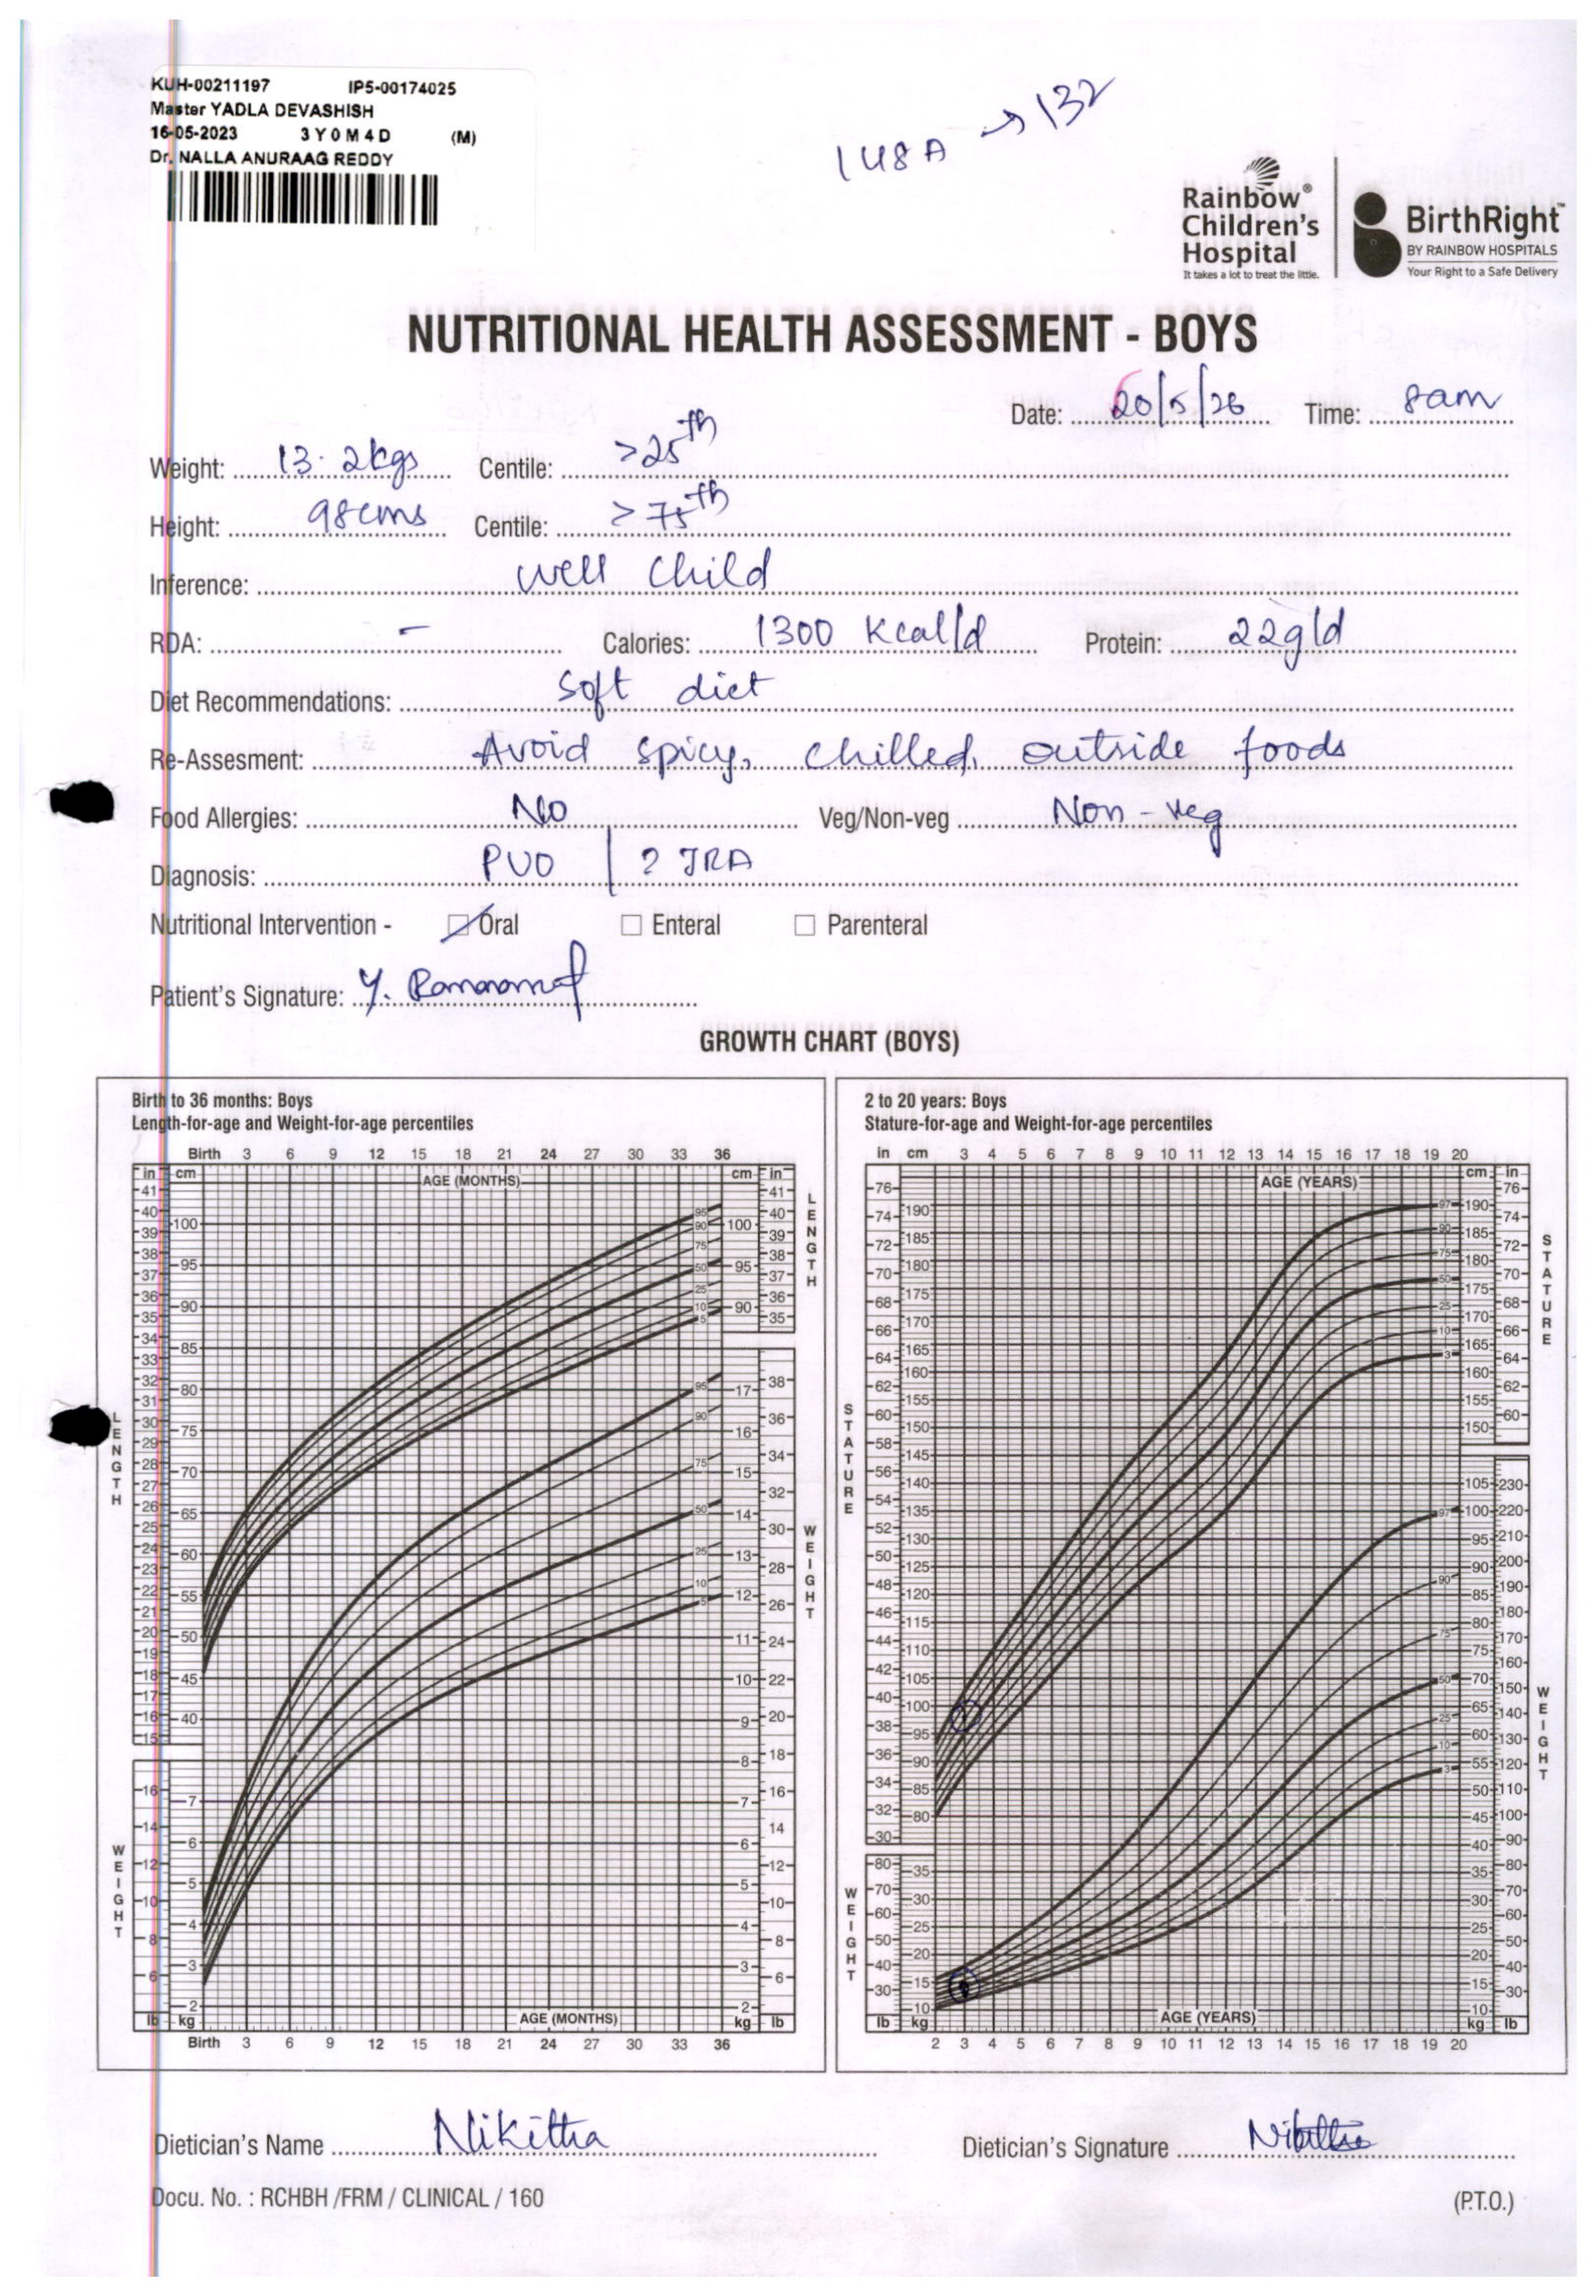 KUH-00211197 IP5-00174025
Master YADLA DEVASHISH
16-05-2023 3Y0M4D (M)
Dr. NALLA ANURAAG REDDY
148A → 132
Rainbow® Children's Hospital
It takes a lot to treat the little.
BirthRight™
BY RAINBOW HOSPITALS
Your Right to a Safe Delivery
NUTRITIONAL HEALTH ASSESSMENT - BOYS
Date: 20/5/26 Time: 8am
Weight: 13.2kgs Centile: >25th
Height: 98cms Centile: >75th
Inference: well child
RDA: - Calories: 1300 Kcal/d Protein: 22g/d
Diet Recommendations: soft diet
Re-Assesment: Avoid spicy, chilled, outside foods
Food Allergies: No Veg/Non-veg Non-veg
Diagnosis: PUO | ? JRA
Nutritional Intervention - Oral Enteral Parenteral
Patient's Signature: Y.
GROWTH CHART (BOYS)
Birth to 36 months: Boys
Length-for-age and Weight-for-age percentiles
Birth 3 6 9 12 15 18 21 24 27 30 33 36
in cm AGE (MONTHS) cm in
LENGTH
WEIGHT
AGE (MONTHS)
lb kg kg lb
Birth 3 6 9 12 15 18 21 24 27 30 33 36
2 to 20 years: Boys
Stature-for-age and Weight-for-age percentiles
in cm 3 4 5 6 7 8 9 10 11 12 13 14 15 16 17 18 19 20
AGE (YEARS) cm in
STATURE
WEIGHT
AGE (YEARS)
lb kg kg lb
2 3 4 5 6 7 8 9 10 11 12 13 14 15 16 17 18 19 20
Dietician's Name Nikitha Dietician's Signature Nikitha
Docu. No. : RCHBH /FRM / CLINICAL / 160 (P.T.O.)